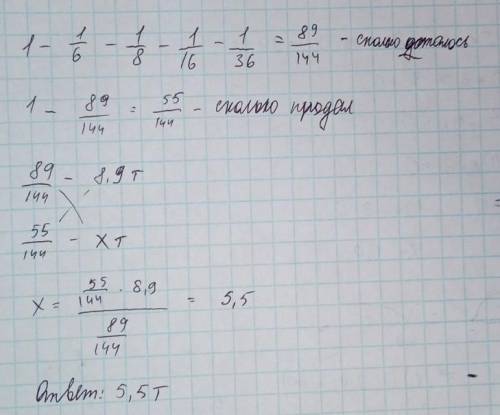 1 - 1/6 - 1/8 - 1/16 - 1/36 = 89/144 - сколько осталось
1 - 89/144 = 55/144 - сколько продал
89/144 - 8,9 т
55/144 - x т
x = (55/144 · 8,9) / (89/144) = 5,5
Ответ: 5,5 т